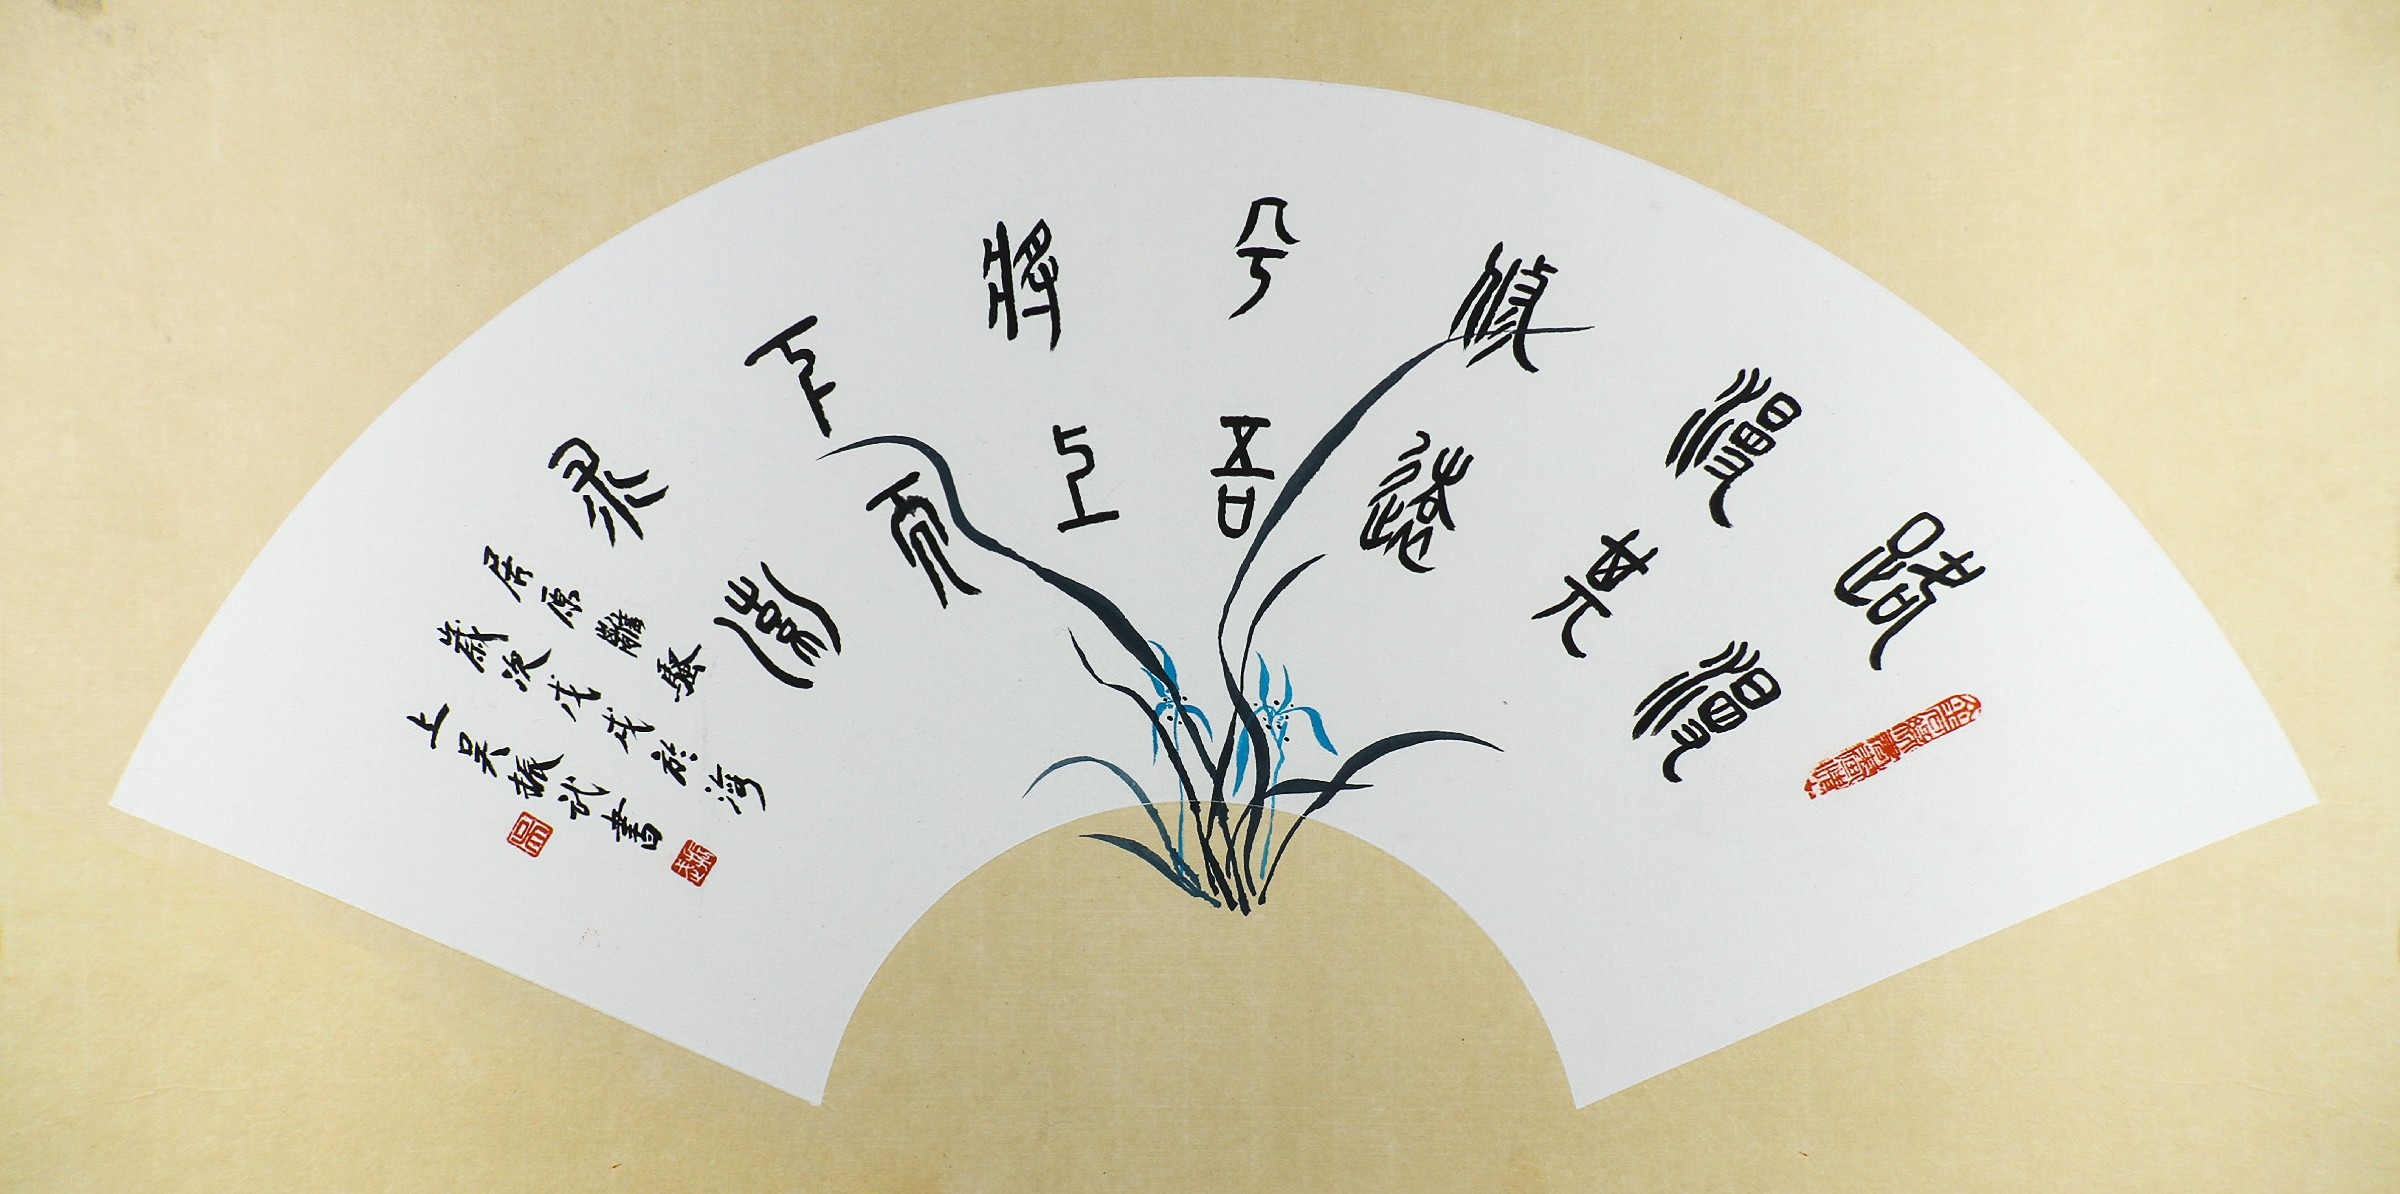 路漫
漫其
修遠
兮吾
將上
下而
求索
屈原離騷
歲次戊戌於灣
上吳振武書